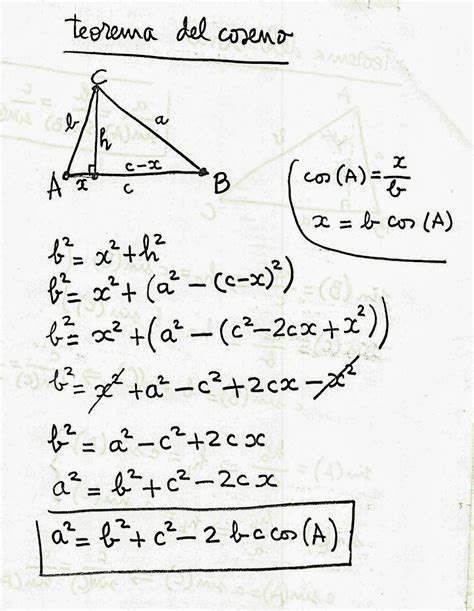 teorema del coseno
C
b
h
a
c-x
A
x
c
B
cos(A)=x/b
x = b cos(A)
b²= x²+h²
b²= x²+(a²-(c-x)²)
b²= x²+(a²-(c²-2cx+x²))
b²= x²+a²-c²+2cx-x²
b²= a²-c²+2cx
a²= b²+c²-2cx
a²= b²+c²-2 b c cos(A)